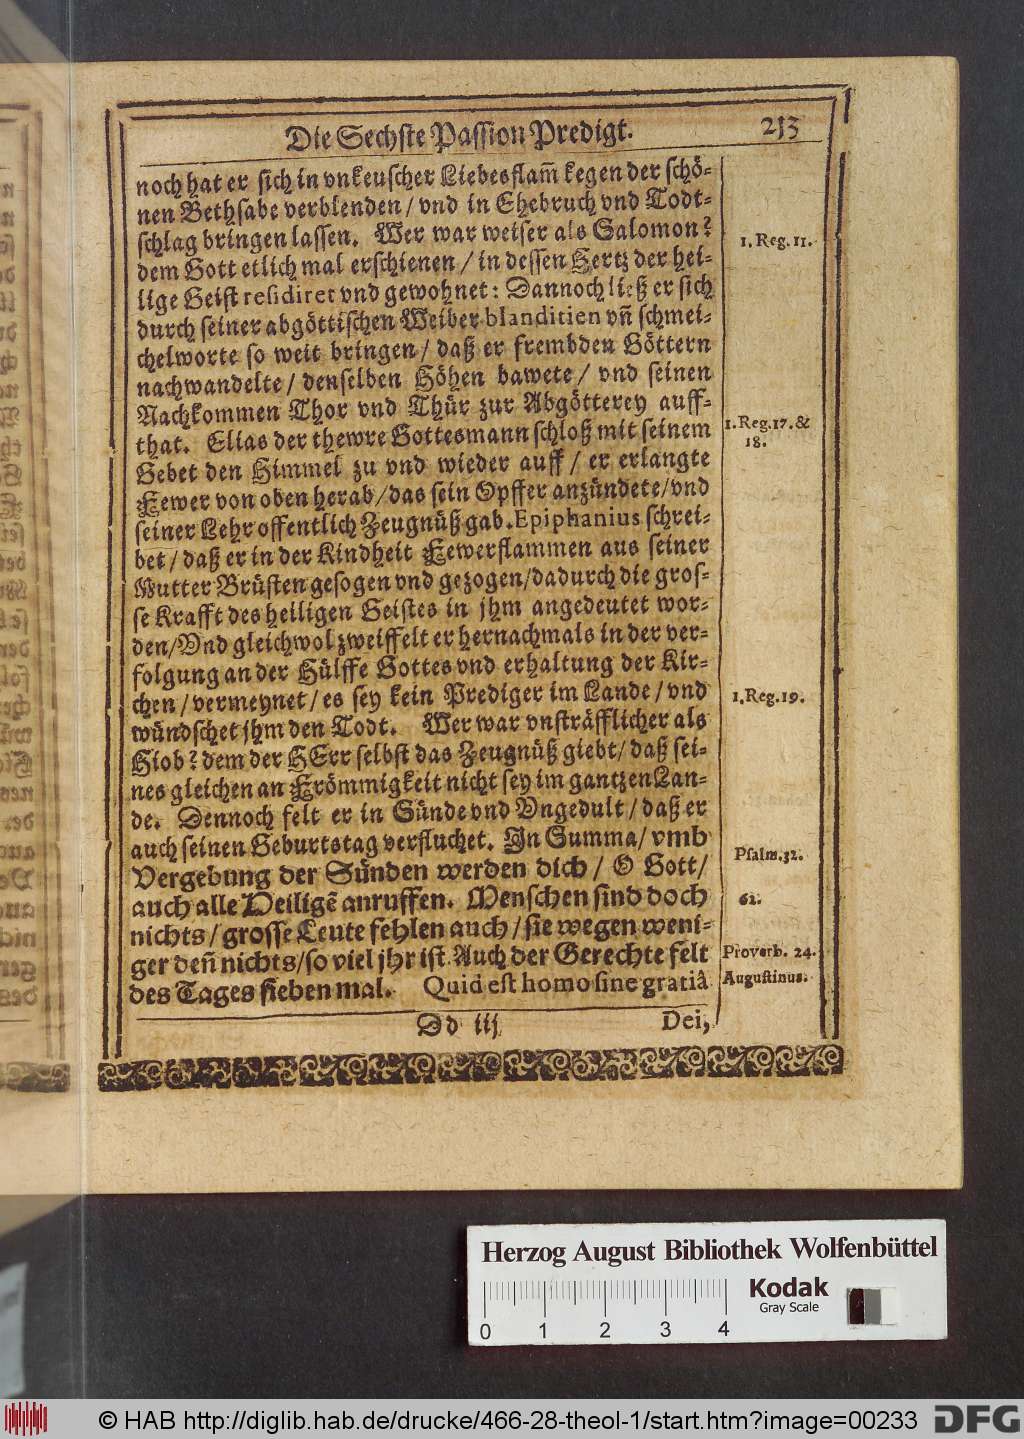 Die Sechste Passion Predigt. 213
noch hat er sich in vnkeuscher Liebesflam̃ kegen der schö-
nen Bethsabe verblenden / vnd in Ehebruch vnd Todt-
schlag bringen lassen. Wer war weiser als Salomon?
1. Reg. 11.
dem Gott etlich mal erschienen / in dessen Hertz der hei-
lige Geist residiret vnd gewohnet: Dannoch ließ er sich
durch seiner abgöttischen Weiber blanditien vñ schmei-
chelworte so weit bringen / daß er frembden Göttern
nachwandelte / denselben Höhen bawete / vnd seinen
Nachkommen Thor vnd Thür zur Abgötterey auff-
that. Elias der thewre Gottesmann schloß mit seinem
1. Reg. 17. &
18.
Gebet den Himmel zu vnd wieder auff / er erlangte
Fewer von oben herab / das sein Opffer anzündete / vnd
seiner Lehr offentlich Zeugnüß gab. Epiphanius schrei-
bet / daß er in der Kindheit Fewerflammen aus seiner
Mutter Brüsten gesogen vnd gezogen / dadurch die gros-
se Krafft des heiligen Geistes in jhm angedeutet wor-
den / Vnd gleichwol zweiffelt er hernachmals in der ver-
folgung an der Hülffe Gottes vnd erhaltung der Kir-
chen / vermeynet / es sey kein Prediger im Lande / vnd
1. Reg. 19.
wündschet jhm den Todt. Wer war vnsträfflicher als
Hiob? dem der HErr selbst das Zeugnüß giebt / daß sei-
nes gleichen an Frömmigkeit nicht sey im gantzen Lan-
de. Dennoch felt er in Sünde vnd Vngedult / daß er
auch seinen Geburtstag verfluchet. In Summa / vmb
Psalm. 32.
Vergebung der Sünden werden dich / O Gott /
auch alle Heiligē anruffen. Menschen sind doch
62.
nichts / grosse Leute fehlen auch / sie wegen weni-
ger deñ nichts / so viel jhr ist. Auch der Gerechte felt
Proverb. 24.
des Tages sieben mal. Quid est homo sine gratiâ
Augustinus.
Dd iij Dei,
Herzog August Bibliothek Wolfenbüttel
Kodak
Gray Scale
0 1 2 3 4
© HAB http://diglib.hab.de/drucke/466-28-theol-1/start.htm?image=00233
DFG